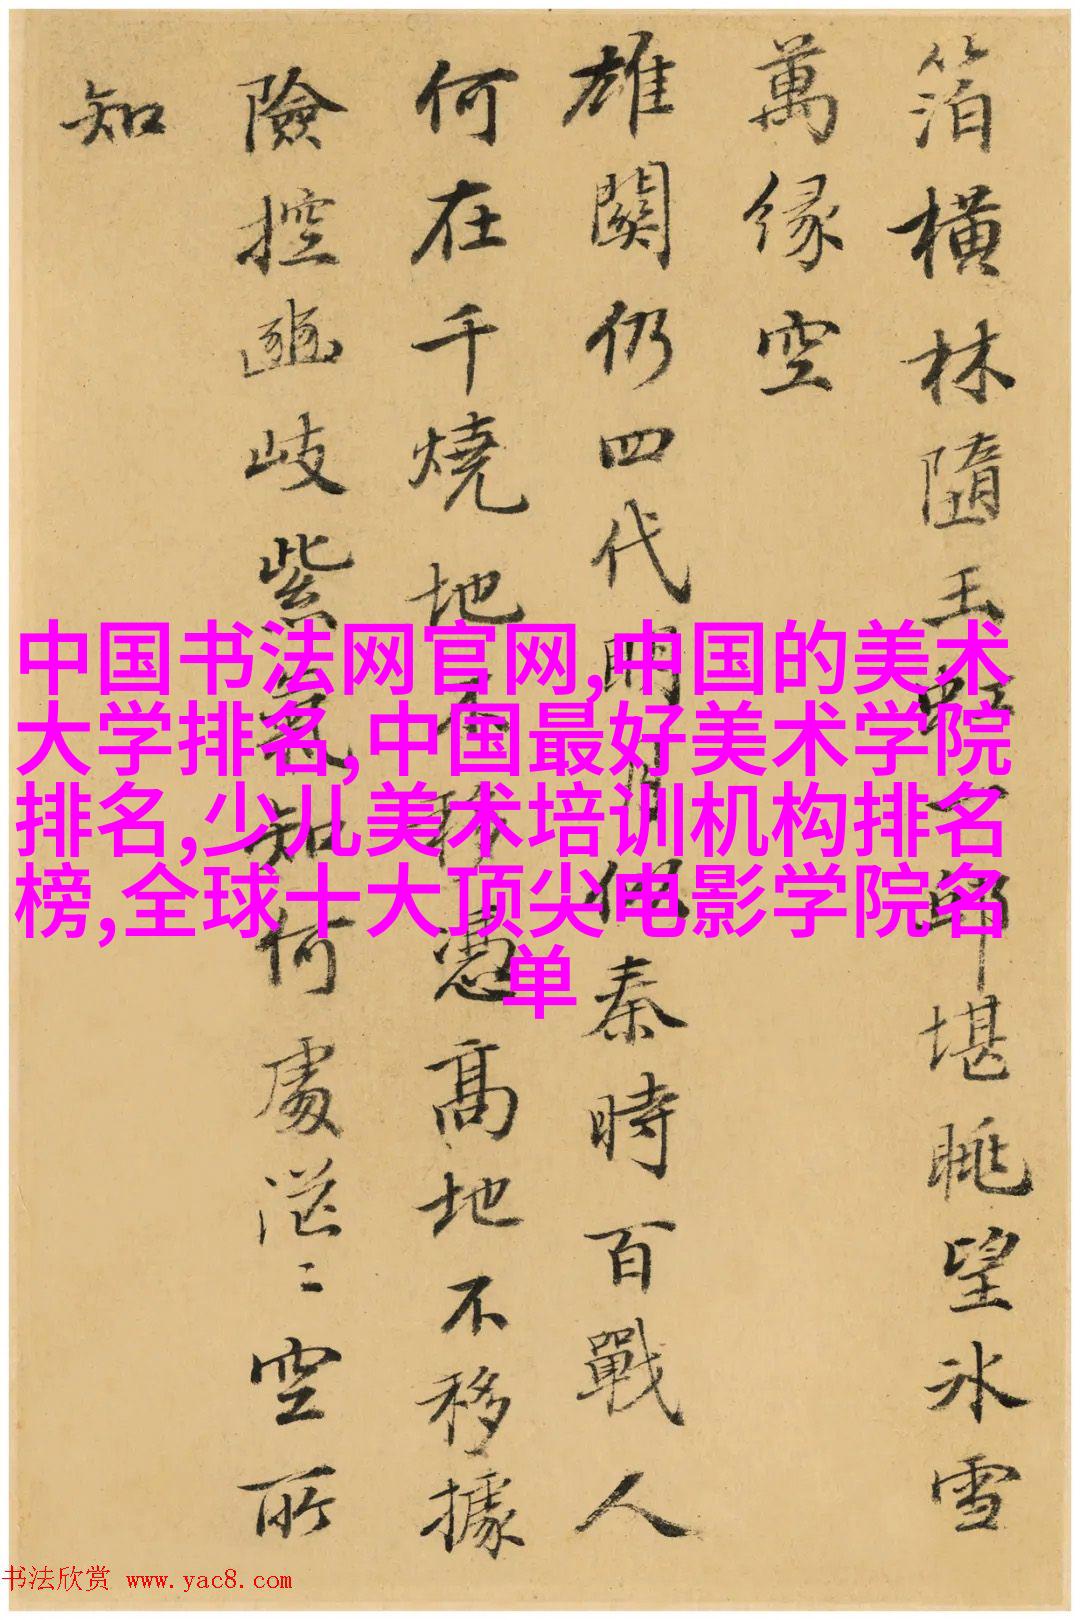 箔橫林隨玉堪眺望氷雪
萬緣空
雄関仍四代明月秦時百戰人
何在千燒地不移憑高地不移據
險控豳岐紫氣知何處茫〻空所
知
中国书法网官网,中国的美术
大学排名,中国最好美术学院
排名,少儿美术培训机构排名
榜,全球十大顶尖电影学院名
单
书法欣赏 www.yac8.com